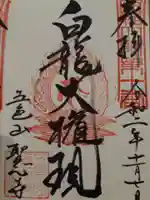 奉拝
令和二年十一月七日
白龍大権現
五色山
聖心寺